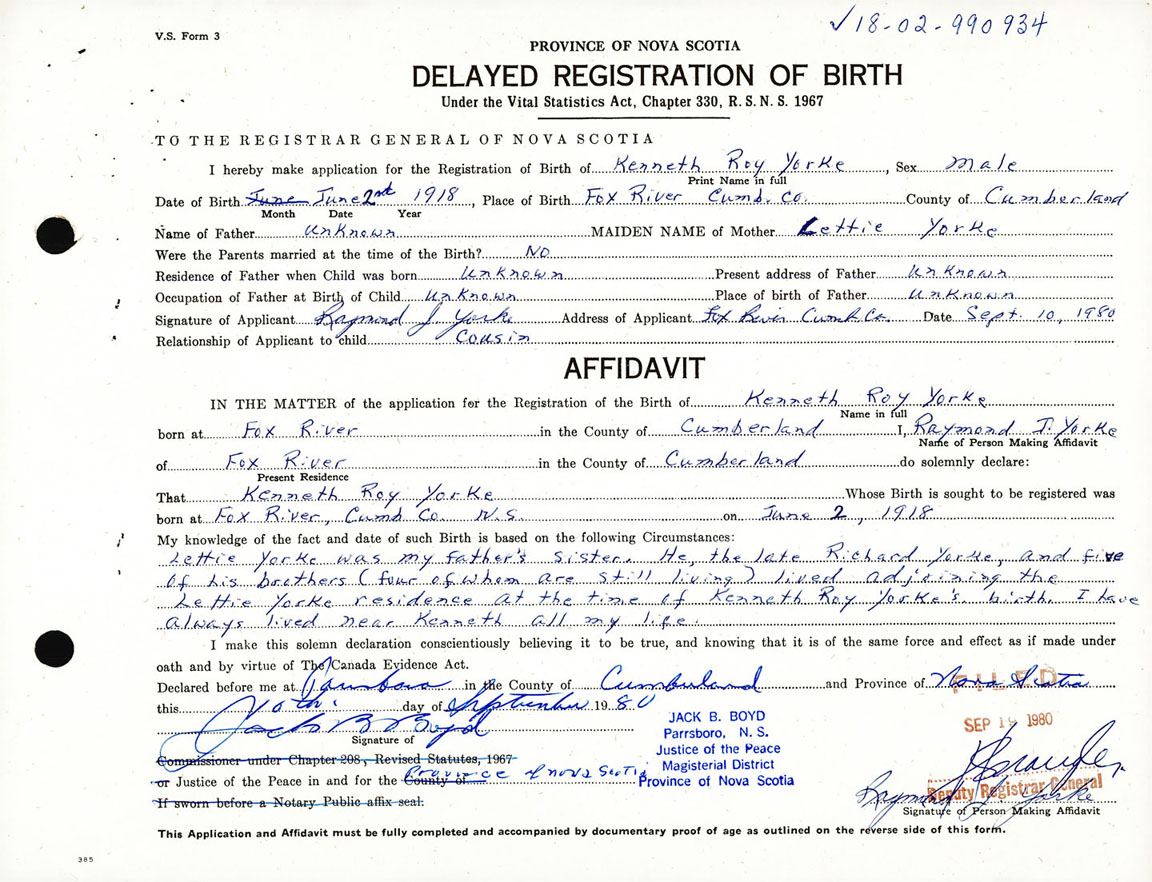 ✓18-02-990934
V.S. Form 3
PROVINCE OF NOVA SCOTIA
DELAYED REGISTRATION OF BIRTH
Under the Vital Statistics Act, Chapter 330, R. S. N. S. 1967
TO THE REGISTRAR GENERAL OF NOVA SCOTIA
I hereby make application for the Registration of Birth of Kenneth Roy Yorke, Sex Male
Print Name in full
Date of Birth June June 2nd 1918, Place of Birth Fox River Cumb. Co. County of Cumberland
Month Date Year
Name of Father unknown MAIDEN NAME of Mother Lettie Yorke
Were the Parents married at the time of the Birth? No
Residence of Father when Child was born unknown Present address of Father unknown
Occupation of Father at Birth of Child unknown Place of birth of Father unknown
Signature of Applicant Raymond J. Yorke Address of Applicant Fox River Cumb. Co. Date Sept. 10, 1980
Relationship of Applicant to child Cousin
AFFIDAVIT
IN THE MATTER of the application for the Registration of the Birth of Kenneth Roy Yorke
Name in full
born at Fox River in the County of Cumberland I, Raymond J. Yorke
Name of Person Making Affidavit
of Fox River in the County of Cumberland do solemnly declare:
Present Residence
That Kenneth Roy Yorke Whose Birth is sought to be registered was
born at Fox River, Cumb Co. N.S. on June 2, 1918
My knowledge of the fact and date of such Birth is based on the following Circumstances:
Lettie Yorke was my father's sister. He, the late Richard Yorke, and five
of his brothers (four of whom are still living) lived adjoining the
Lettie Yorke residence at the time of Kenneth Roy Yorke's birth. I have
always lived near Kenneth all my life.
I make this solemn declaration conscientiously believing it to be true, and knowing that it is of the same force and effect as if made under
oath and by virtue of The Canada Evidence Act.
Declared before me at Parrsboro in the County of Cumberland and Province of Nova Scotia
FILED
this 10th day of September 1980
SEP 19 1980
Jack B Boyd
JACK B. BOYD
Parrsboro, N. S.
Justice of the Peace
Magisterial District
Province of Nova Scotia
Signature of
Commissioner under Chapter 208, Revised Statutes, 1967
or Justice of the Peace in and for the County of Province of Nova Scotia
If sworn before a Notary Public affix seal.
Deputy Registrar General
Raymond J. Yorke
Signature of Person Making Affidavit
This Application and Affidavit must be fully completed and accompanied by documentary proof of age as outlined on the reverse side of this form.
385